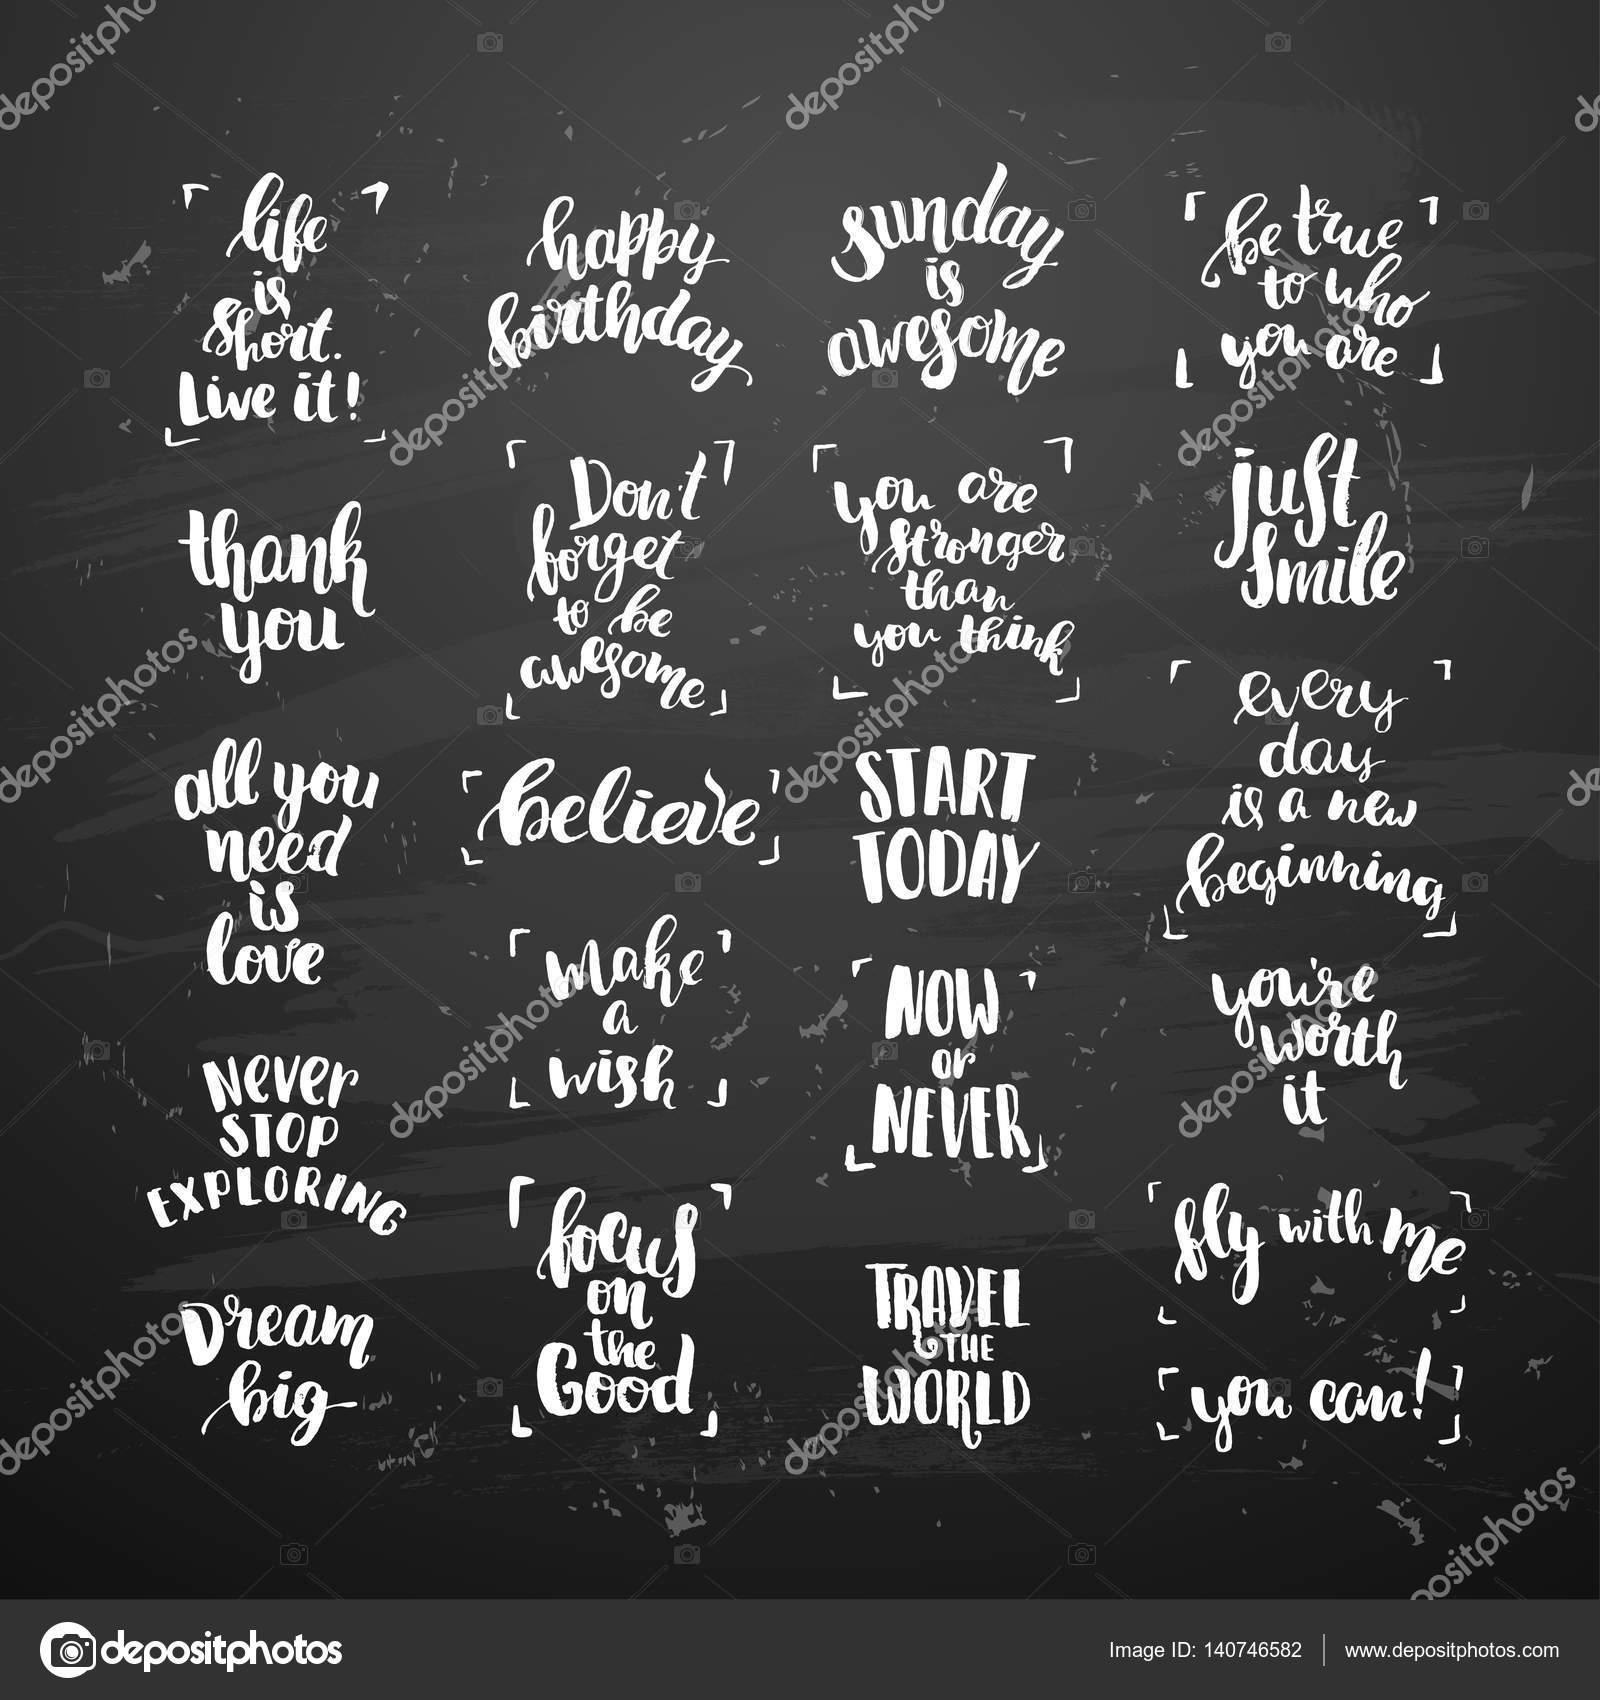 life
is
short.
Live it!
thank
you
all you
need
is
love
NEVER
STOP
EXPLORING
Dream
big
happy
birthday
Don't
forget
to be
awesome
believe
make
a
wish
focus
on
the
Good
sunday
is
awesome
you are
stronger
than
you think
START
TODAY
NOW
or
NEVER
TRAVEL
THE
WORLD
be true
to who
you are
just
smile
every
day
is a new
beginning
you're
worth
it
fly with me
you can!
depositphotos
Image ID: 140746582
www.depositphotos.com